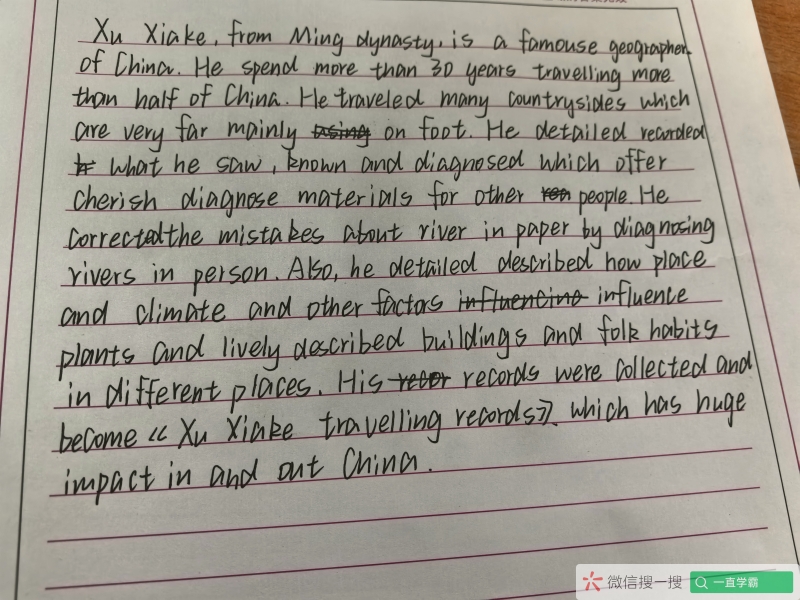 Xu Xiake, from Ming dynasty, is a famouse geographer
of China. He spend more than 30 years travelling more
than half of China. He traveled many countrysides which
are very far mainly using on foot. He detailed recorded
what he saw, known and diagnosed which offer
cherish diagnose materials for other people. He
corrected the mistakes about river in paper by diagnosing
rivers in person. Also, he detailed described how place
and climate and other factors influencing influence
plants and lively described buildings and folk habits
in different places. His recor records were collected and
become《Xu Xiake travelling records》, which has huge
impact in and out China.
微信搜一搜 一直学霸